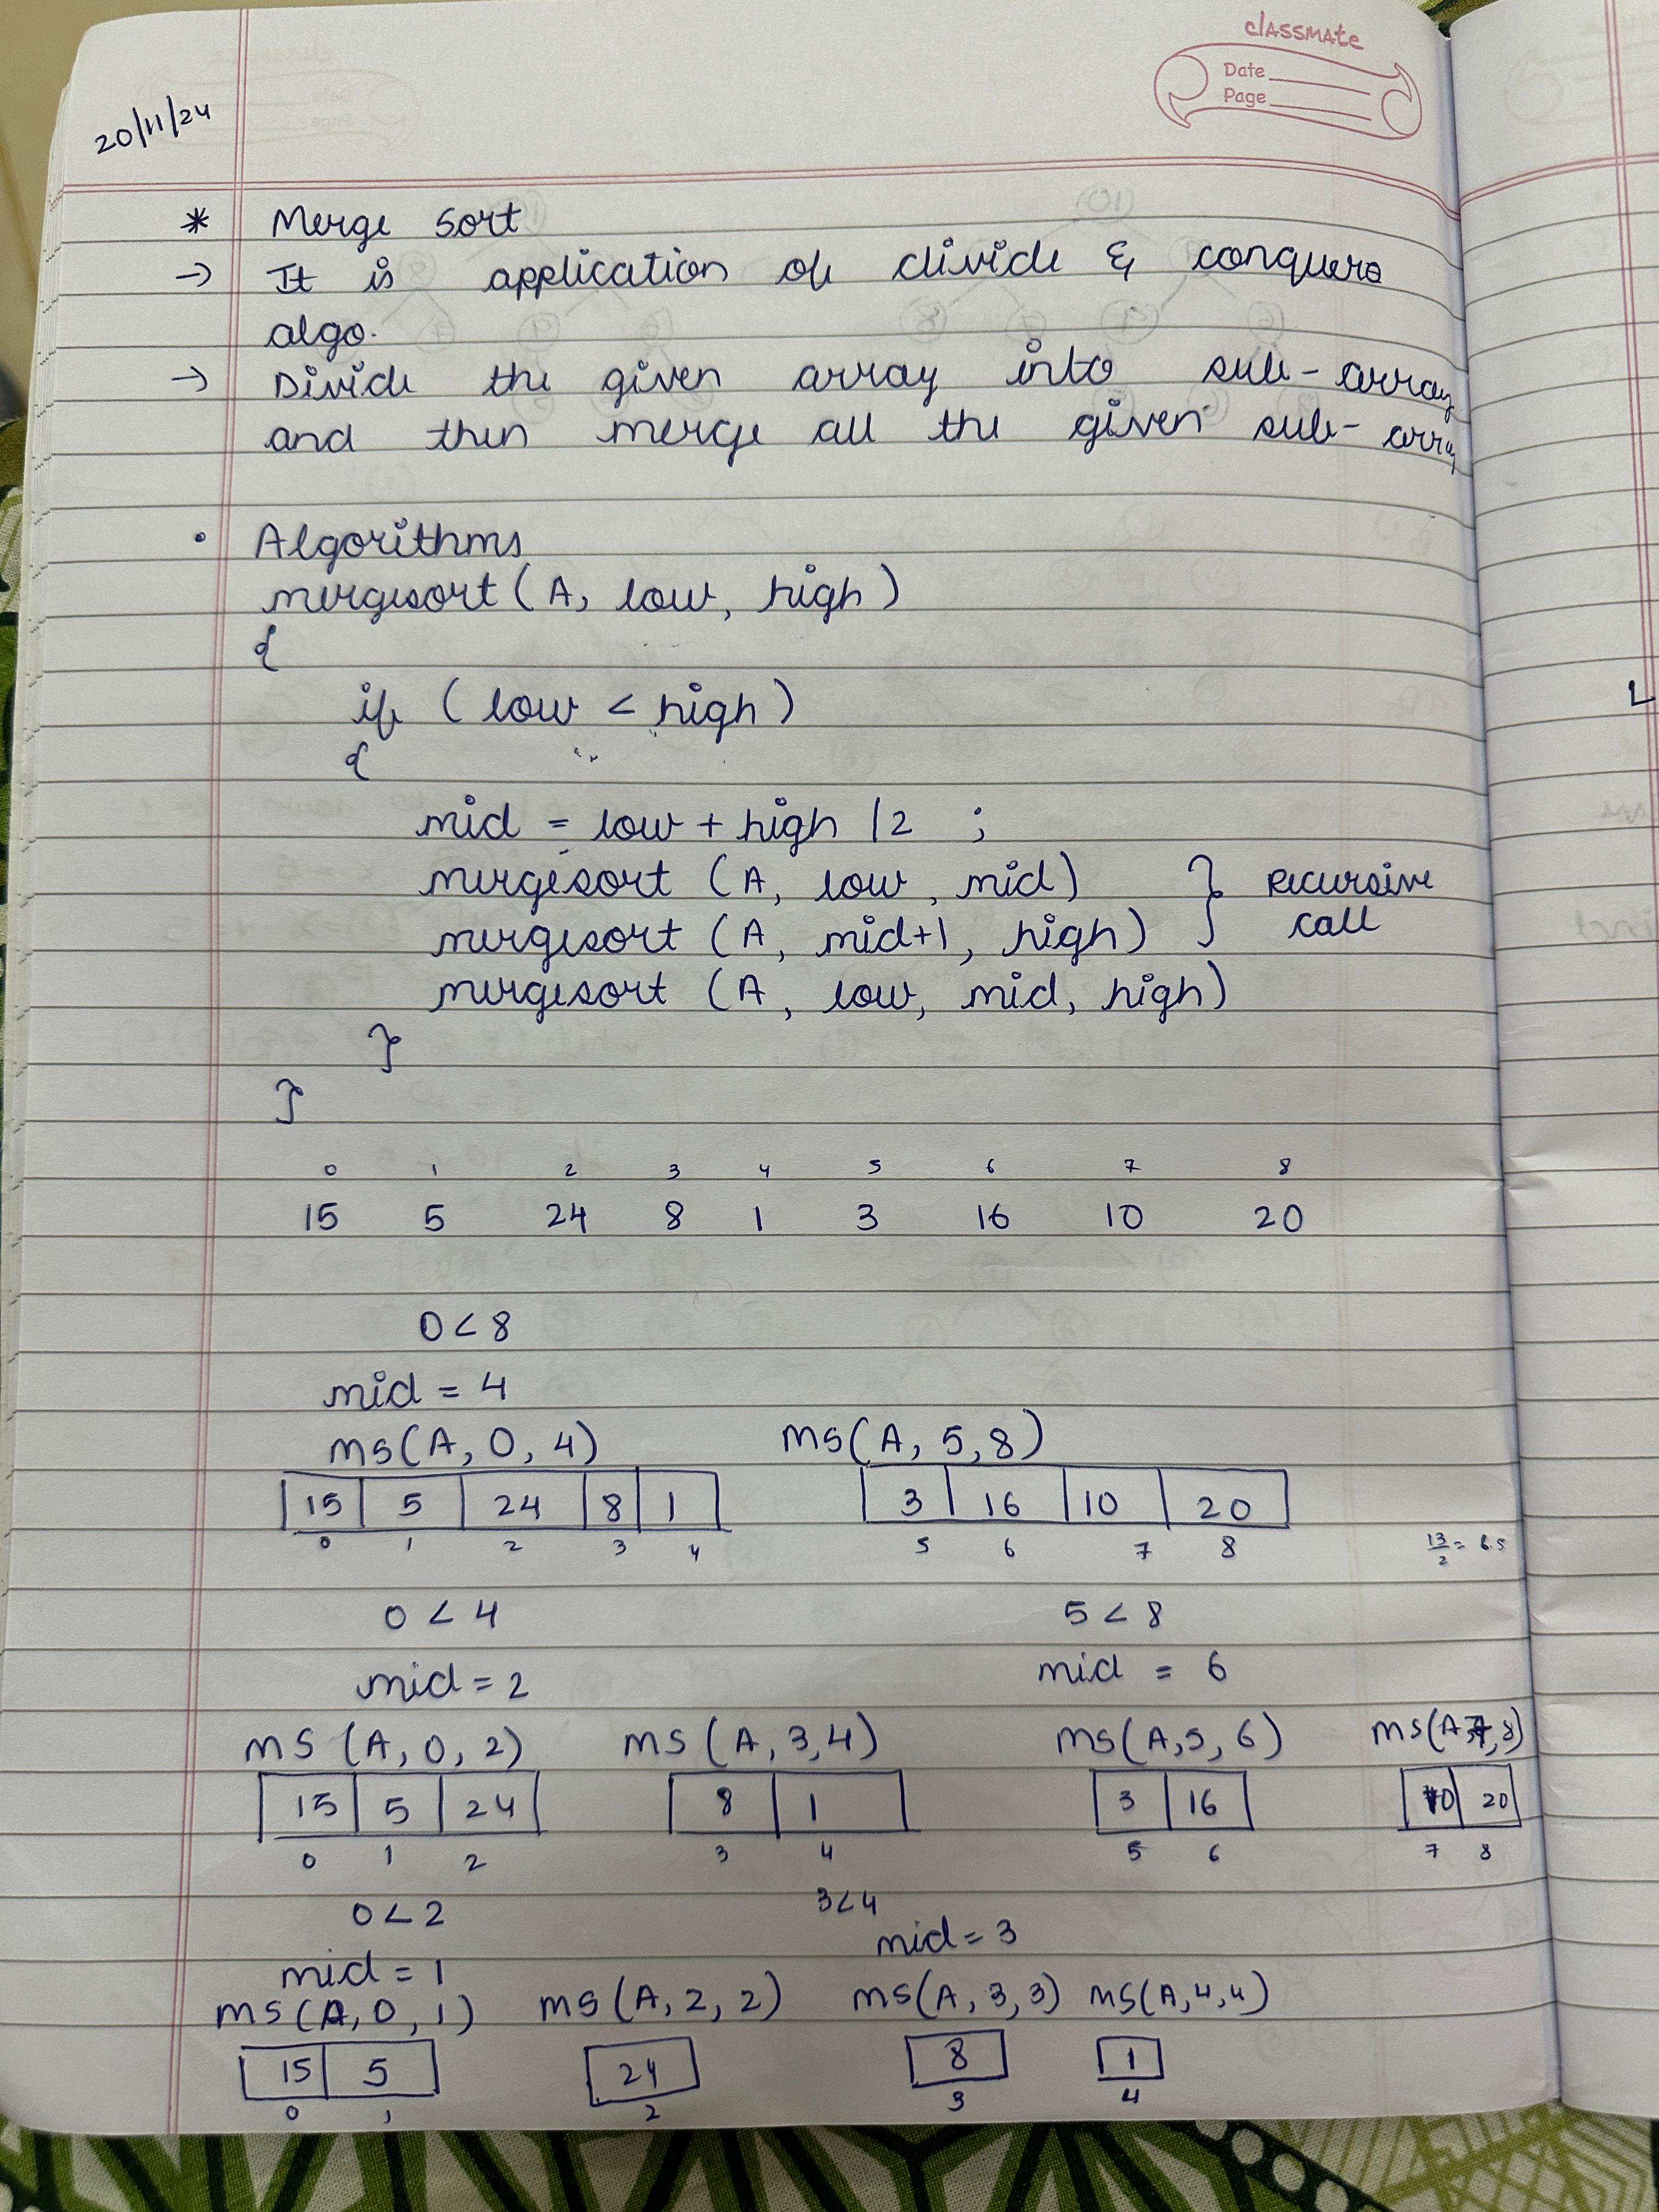 classmate
Date
Page
20/11/24
* Merge Sort
→ It is application of divide & conquers
algo.
→ Divide the given array into sub-array
and then merge all the given sub-array
• Algorithms
mergesort (A, low, high)
{
if (low < high)
{
mid = low + high / 2 ;
mergesort (A, low, mid) } recursive
mergesort (A, mid+1, high) call
mergesort (A, low, mid, high)
}
}
0 1 2 3 4 5 6 7 8
15 5 24 8 1 3 16 10 20
0 < 8
mid = 4
MS(A, 0, 4) MS(A, 5, 8)
15 5 24 8 1 3 16 10 20
0 1 2 3 4 5 6 7 8 13/2 = 6.5
0 < 4 5 < 8
mid = 2 mid = 6
MS (A, 0, 2) MS (A, 3, 4) MS(A, 5, 6) MS(A, 7, 8)
15 5 24 8 1 3 16 10 20
0 1 2 3 4 5 6 7 8
0 < 2 3 < 4
mid = 1 mid = 3
MS (A, 0, 1) MS (A, 2, 2) MS(A, 3, 3) MS(A, 4, 4)
15 5 24 8 1
0 1 2 3 4